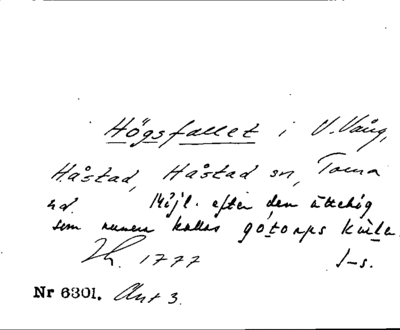 Högsfallet i V. Vång,
Håstad, Håstad sn, Torna
hd. Möjl. efter den ättehög
som numera kallas götorps kulle.
Lh. 1777 J-s.
Nr 6301. Ant 3.